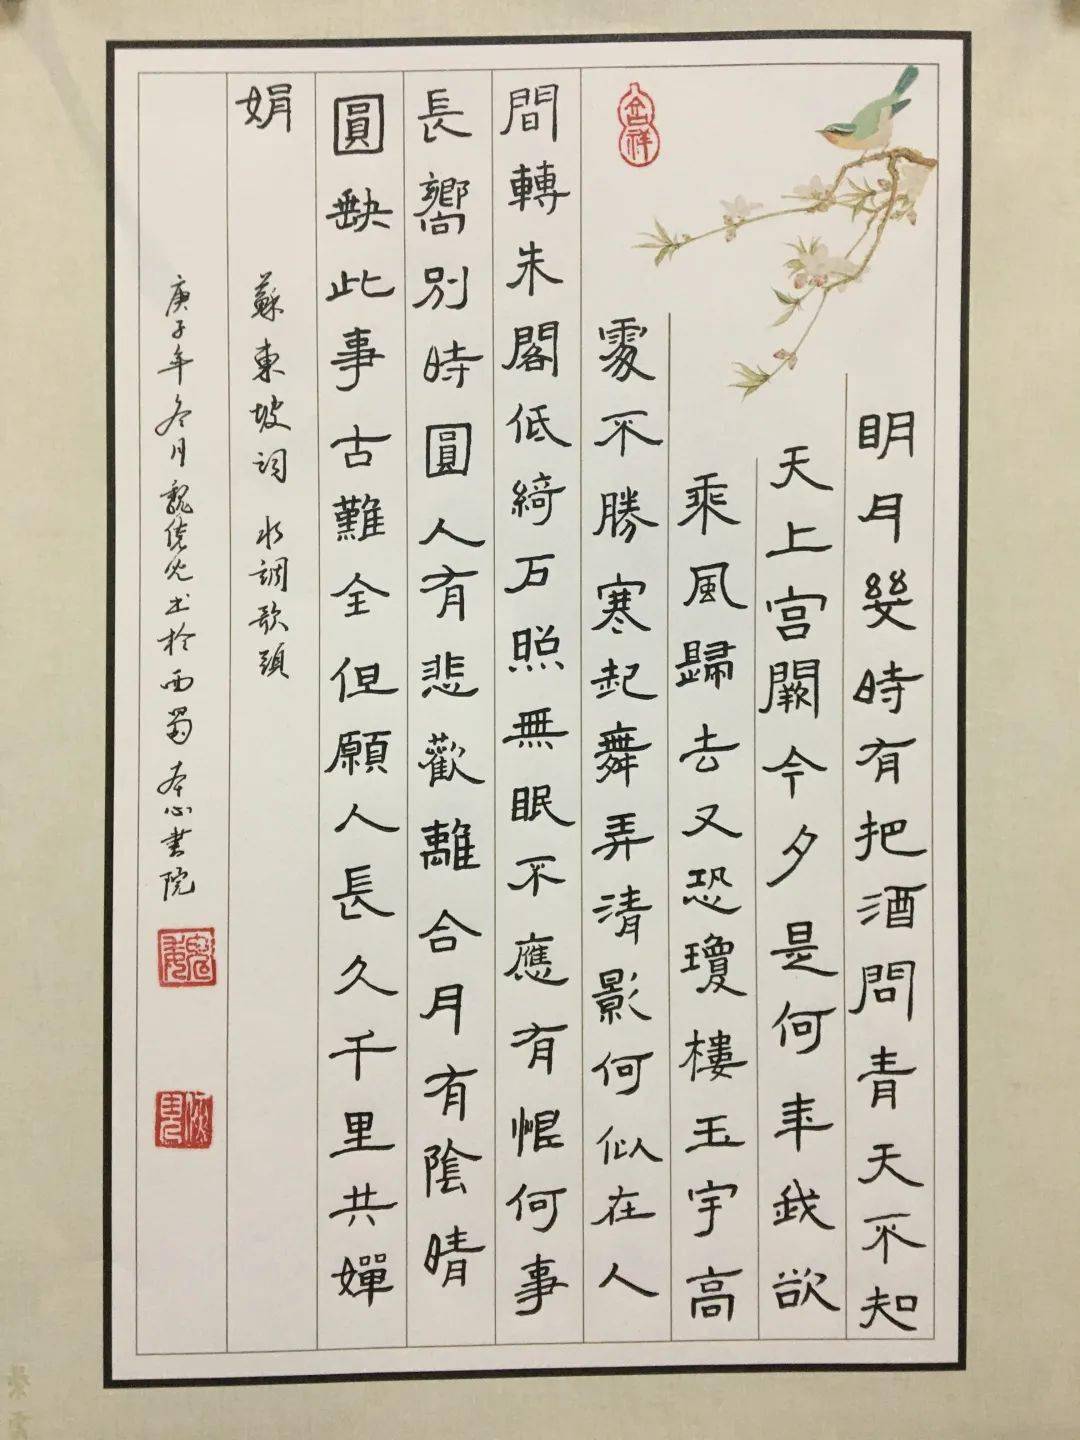 明月幾時有把酒問青天不知
天上宮闕今夕是何年我欲
乘風歸去又恐瓊樓玉宇高
處不勝寒起舞弄清影何似在人
間轉朱閣低綺石照無眠不應有恨何事
長嚮別時圓人有悲歡離合月有陰晴
圓缺此事古難全但願人長久千里共嬋
娟
蘇東坡詞 水調歌頭
庚子年冬月魏俊光書於西蜀本心書院
吉祥
魏